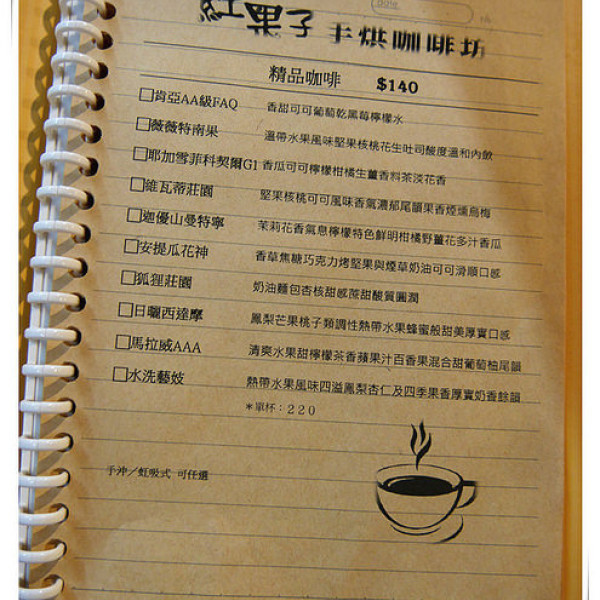 date
紅果子 手烘咖啡坊
精品咖啡 $140
□肯亞AA級FAQ 香甜可可葡萄乾黑莓檸檬水
□薇薇特南果 溫帶水果風味堅果核桃花生吐司酸度溫和內斂
□耶加雪菲科契爾G1 香瓜可可檸檬柑橘生薑香料茶淡花香
□維瓦蒂莊園 堅果核桃可可風味香氣濃郁尾韻果香煙燻烏梅
□迦優山曼特寧 茉莉花香氣息檸檬特色鮮明柑橘野薑花多汁香瓜
□安提瓜花神 香草焦糖巧克力烤堅果與煙草奶油可可滑順口感
□狐狸莊園 奶油麵包杏核甜感蔗甜酸質圓潤
□日曬西達摩 鳳梨芒果桃子類調性熱帶水果蜂蜜般甜美厚實口感
□馬拉威AAA 清爽水果甜檸檬茶香蘋果汁百香果混合甜葡萄柚尾韻
□水洗藝妓 熱帶水果風味四溢鳳梨杏仁及四季果香厚實奶香餘韻
*單杯：220
手沖／虹吸式 可任選